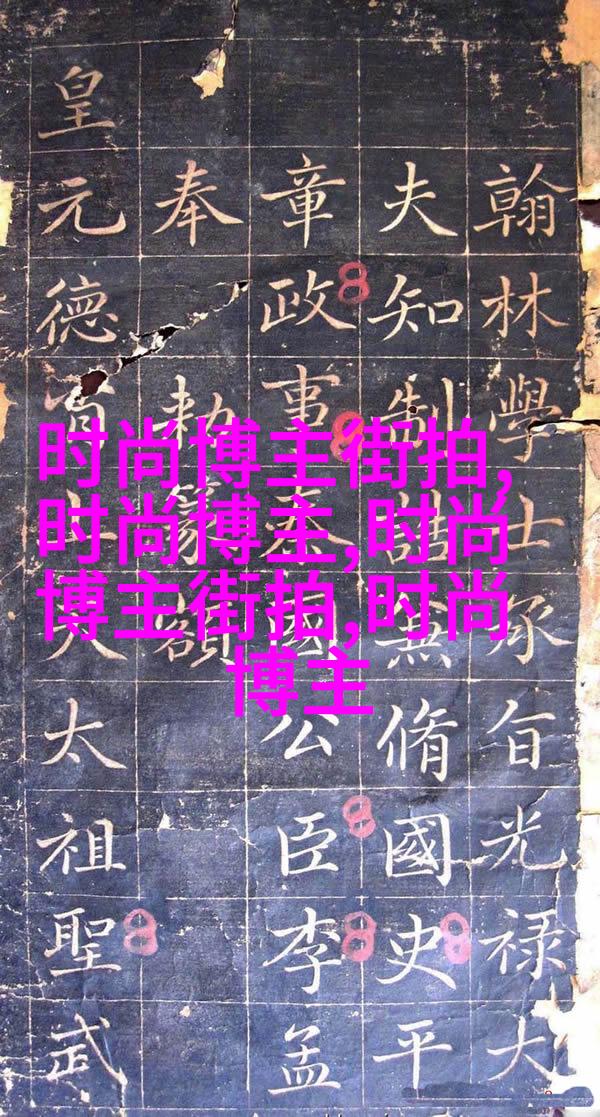 翰林學士承旨光禄大
夫知制誥兼脩國史平
章政事秦國公臣李孟
奉勑篆額
皇元德太祖聖武
时尚博主街拍,
时尚博主,时尚
博主街拍,时尚
博主